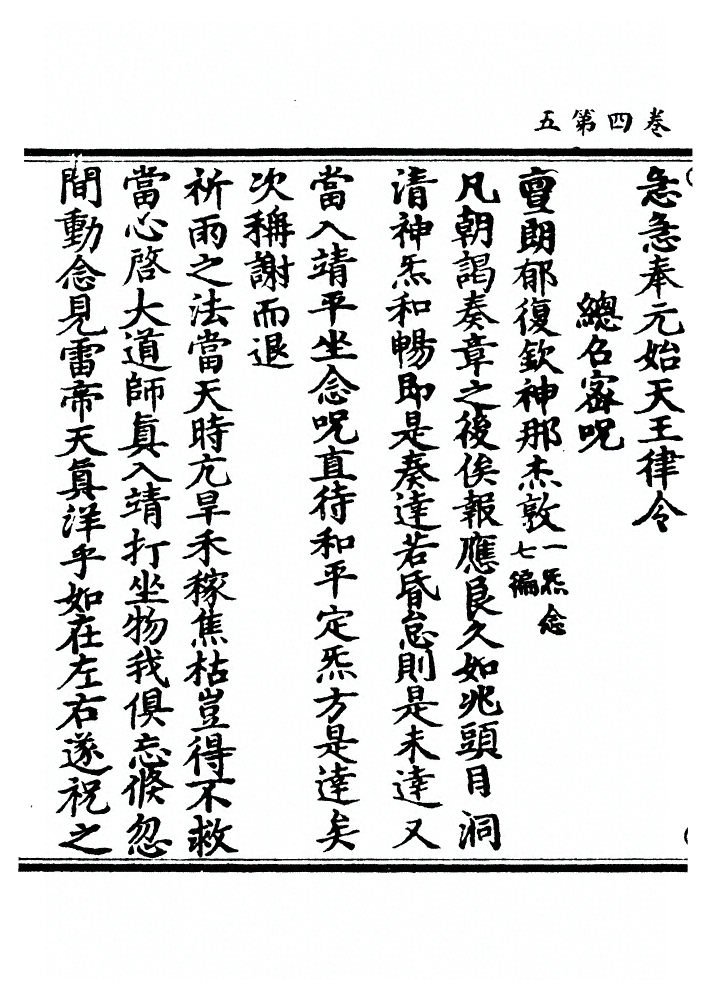 卷四第五
急急奉元始天王律令
總名密呪
亶朗郁復欽神那杰敦一炁念七徧
凡朝謁奏章之後俟報應良久如兆頭目洞
清神炁和暢即是奏達若昏怠則是未達又
當入靖平坐念呪直待和平定炁方是達矣
次稱謝而退
祈雨之法當天時亢旱禾稼焦枯豈得不救
當心啓大道師真入靖打坐物我俱忘倐忽
間動念見雷帝天真洋乎如在左右遂祝之